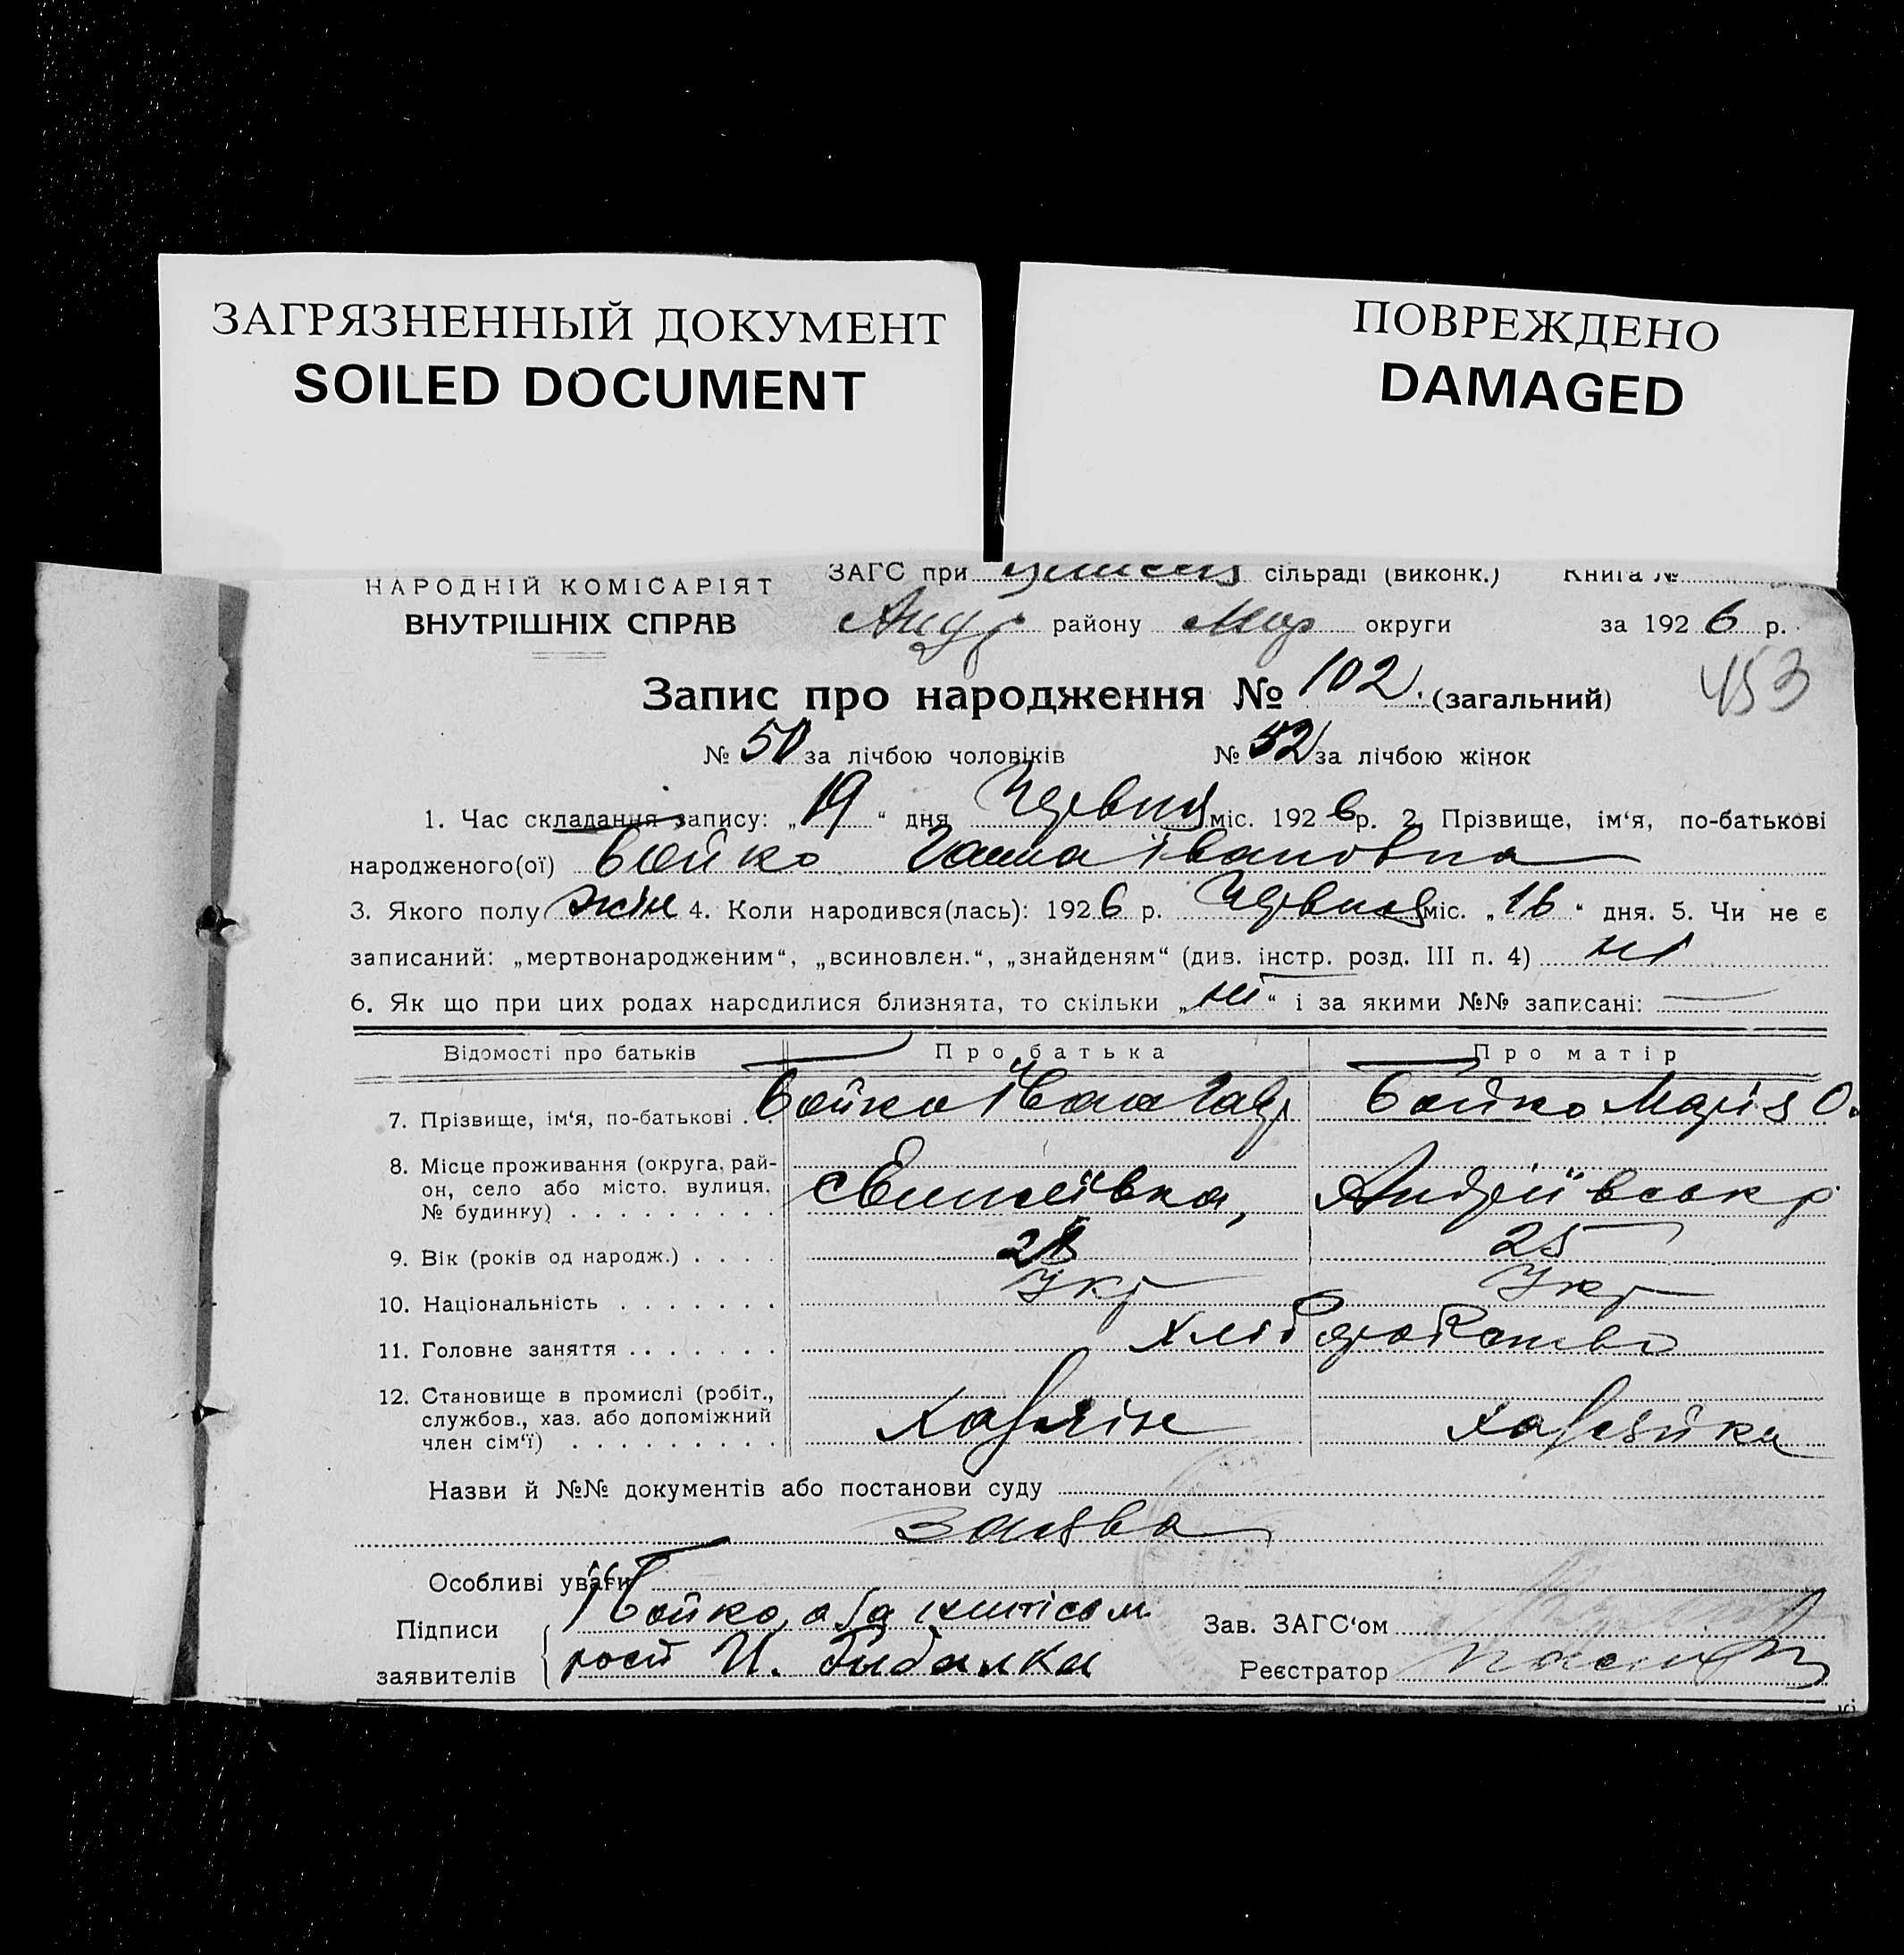 ЗАГРЯЗНЕННЫЙ ДОКУМЕНТ
SOILED DOCUMENT
ПОВРЕЖДЕНО
DAMAGED
НАРОДНІЙ КОМІСАРІЯТ
ВНУТРІШНІХ СПРАВ
ЗАГС при сільраді (виконк.) Книга №
Андр району Мар округи за 1926 р.
Запис про народження № 102. (загальний)
453
№ 50 за лічбою чоловіків № 52 за лічбою жінок
1. Час складання запису: „19“ дня Червня міс. 1926 р. 2. Прізвище, ім‘я, по-батькові
народженого(ої) Бойко Ганна Івановна
3. Якого полу жін 4. Коли народився(лась): 1926 р. Червня міс. „16“ дня. 5. Чи не є
записаний: „мертвонародженим“, „всиновлен.“, „знайденям“ (див. інстр. розд. III п. 4) ні
6. Як що при цих родах народилися близнята, то скільки „ні“ і за якими №№ записані: —
Відомості про батьків Про батька Про матір
7. Прізвище, ім‘я, по-батькові . . Бойко Іван Гавр Бойко Марія О.
8. Місце проживання (округа, рай-
он, село або місто, вулиця,
№ будинку) . . . . . . . . . Андріївськ р
9. Вік (років од народж.) . . . . 28 25
10. Національність . . . . . . . Укр Укр
11. Головне заняття . . . . . . . Хліборобство
12. Становище в промислі (робіт.,
службов., хаз. або допоміжний
член сім‘ї) . . . . . . . . . Хазяїн Хазяйка
Назви й №№ документів або постанови суду
Заява
Особливі уваги
Підписи Бойко, а за
заявителів рост И. Рибалка
Зав. ЗАГС‘ом
Реєстратор